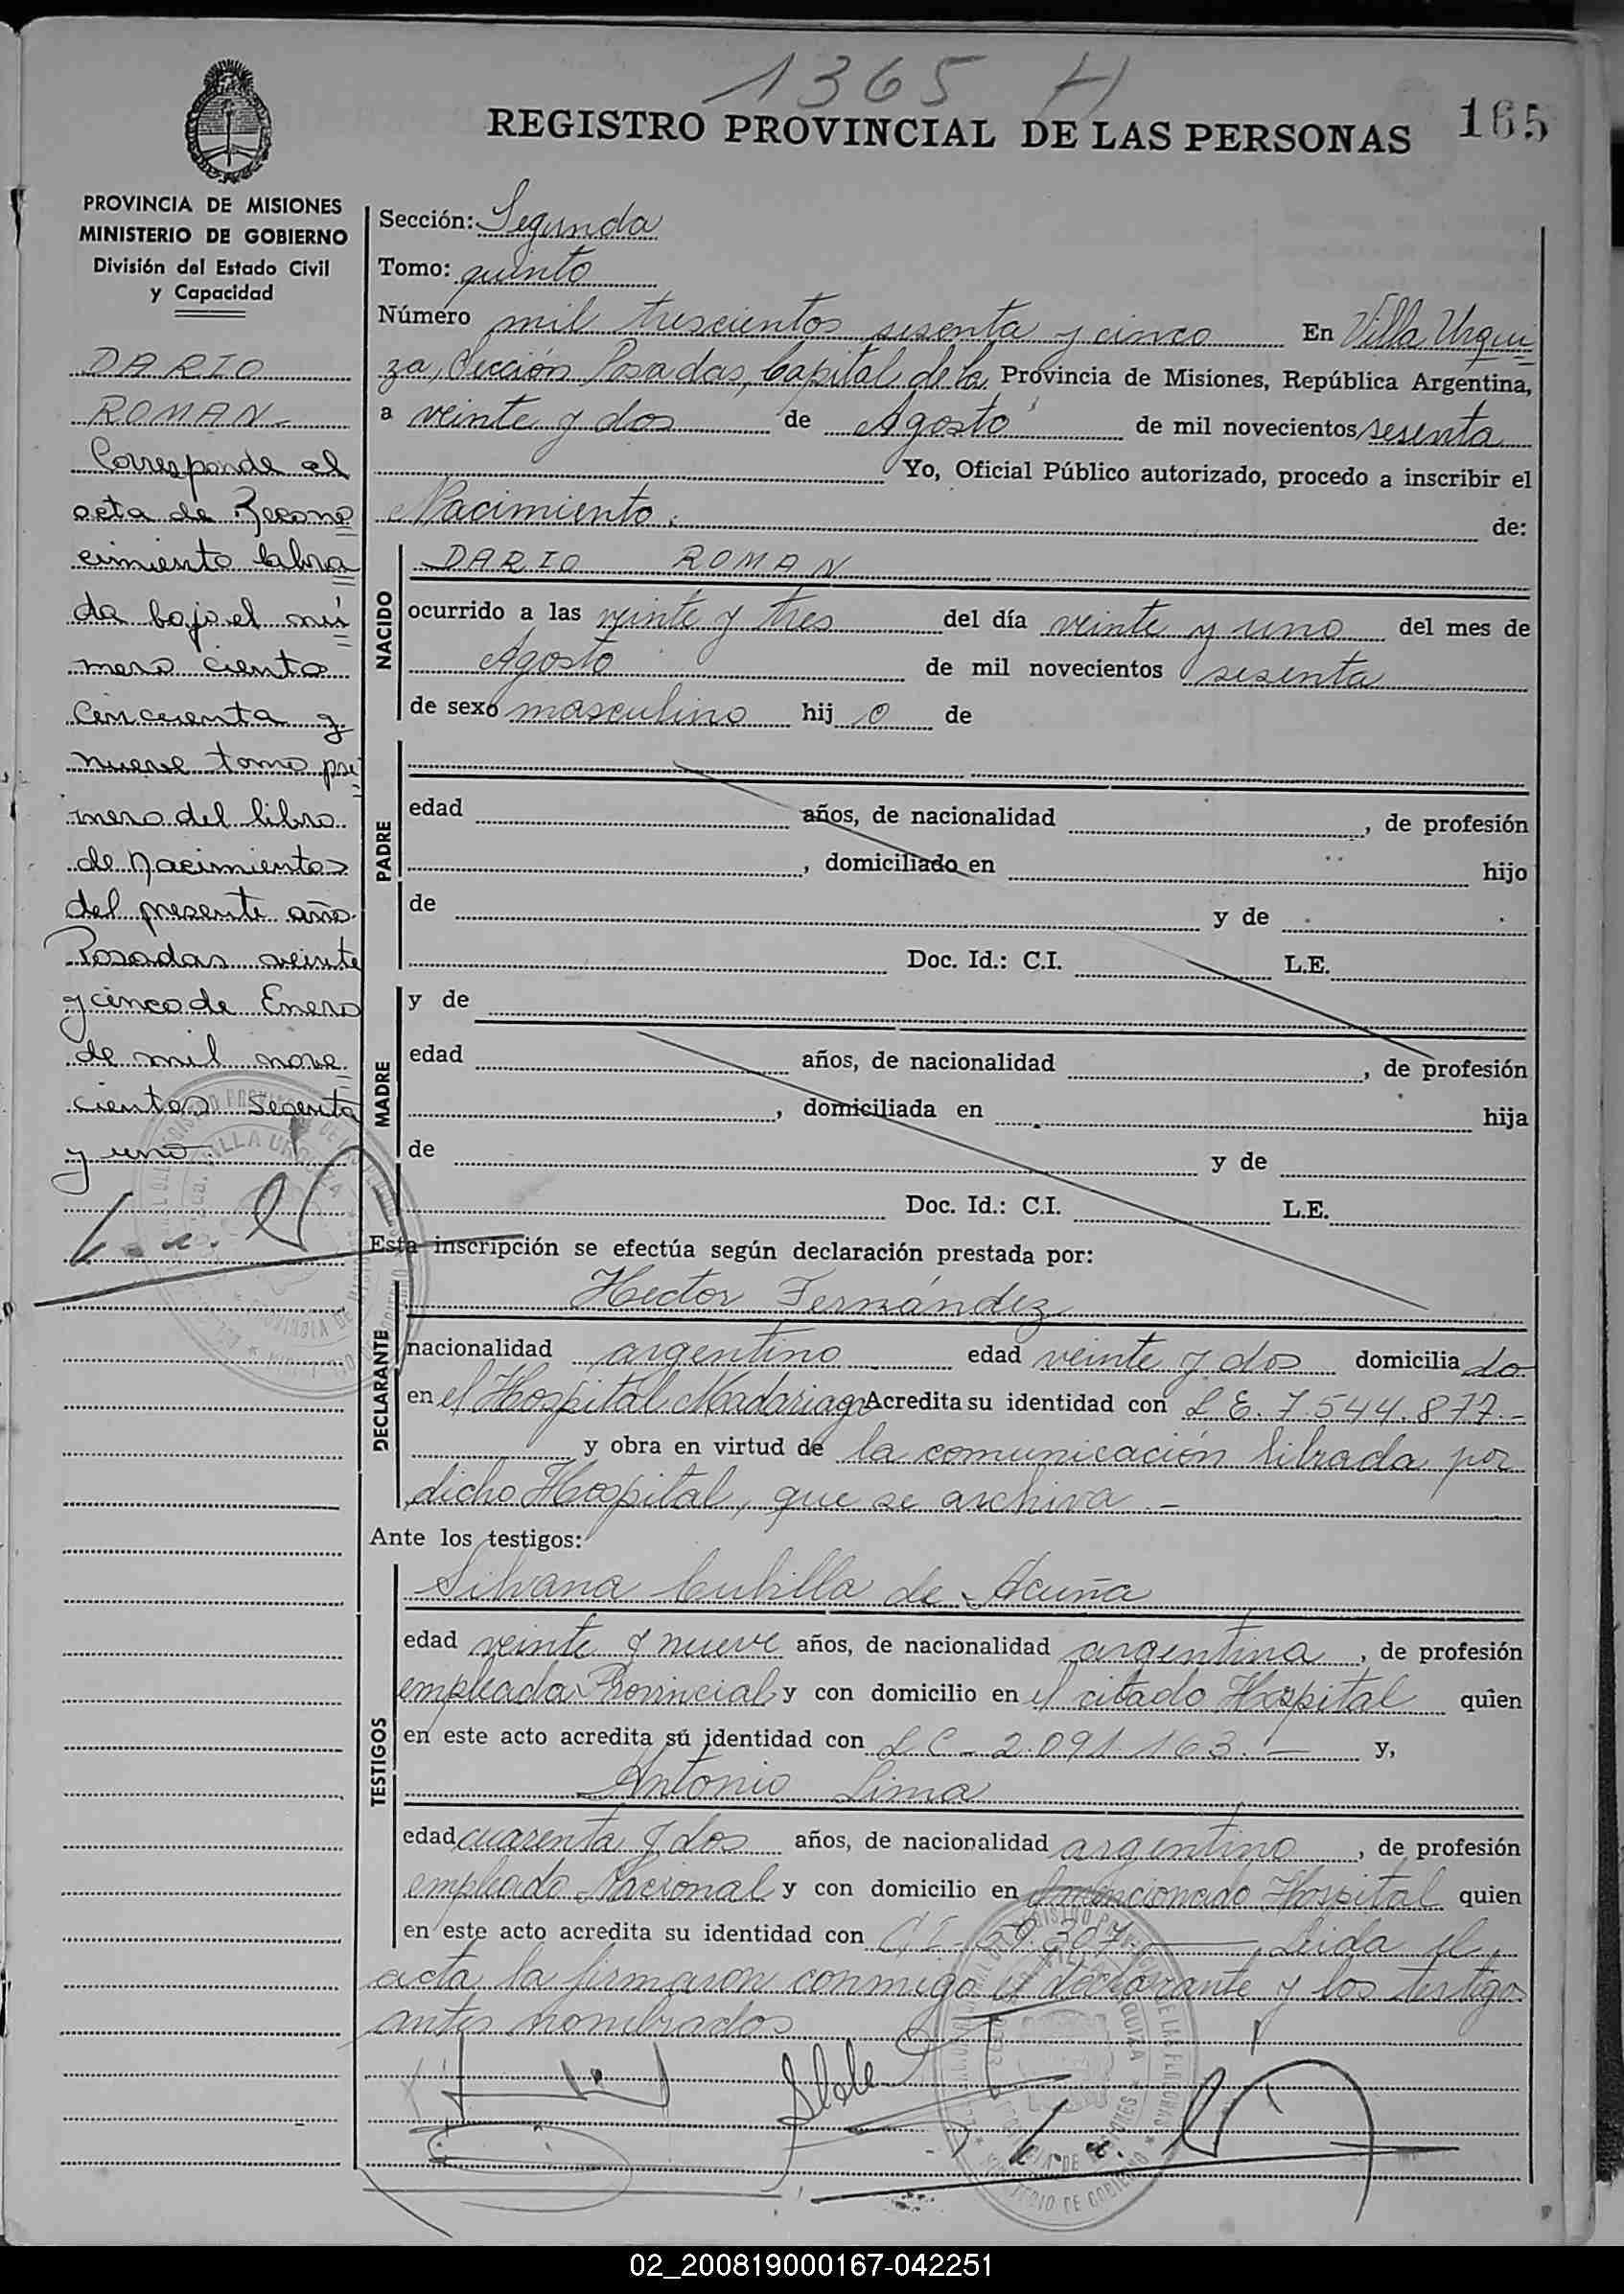 1365 H
REGISTRO PROVINCIAL DE LAS PERSONAS 165
PROVINCIA DE MISIONES
MINISTERIO DE GOBIERNO
División del Estado Civil
y Capacidad
DARIO
ROMAN
Corresponde al
acta de Recono
cimiento labra
da bajo el nú
mero ciento
cincuenta y
nueve tomo pri
mero del libro
de Nacimientos
del presente año.
Posadas veinte
y cinco de Enero
de mil nove
cientos sesenta
y uno.
Sección: Segunda
Tomo: quinto
Número mil trescientos sesenta y cinco En Villa Urqui
za, Sección Posadas, Capital de la Provincia de Misiones, República Argentina,
a veinte y dos de Agosto de mil novecientos sesenta
Yo, Oficial Público autorizado, procedo a inscribir el
Nacimiento. de:
NACIDO
DARIO ROMAN
ocurrido a las veinte y tres del día veinte y uno del mes de
Agosto de mil novecientos sesenta
de sexo masculino hij o de
PADRE
edad años, de nacionalidad , de profesión
, domiciliado en hijo
de y de
Doc. Id.: C.I. L.E.
MADRE
y de
edad años, de nacionalidad , de profesión
, domiciliada en hija
de y de
Doc. Id.: C.I. L.E.
Esta inscripción se efectúa según declaración prestada por:
DECLARANTE
Hector Fernández
nacionalidad argentino edad veinte y dos domicilia do
en el Hospital Madariaga Acredita su identidad con L E. 7.544.877.-
y obra en virtud de la comunicación librada por
dicho Hospital, que se archiva.-
Ante los testigos:
TESTIGOS
Silvana Cubilla de Acuña
edad veinte y nueve años, de nacionalidad argentina, de profesión
empleada Provincial y con domicilio en el citado Hospital quien
en este acto acredita su identidad con L C - 2.091.163.- y,
Antonio Lima
edad cuarenta y dos años, de nacionalidad argentino, de profesión
empleado Nacional y con domicilio en el mencionado Hospital quien
en este acto acredita su identidad con C I - Leida el
acta la firmaron conmigo el declarante y los testigos
antes nombrados
02_200819000167-042251